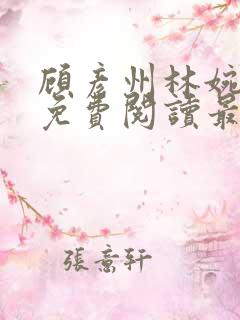 顾彦州林婉
免費閱讀最
張意軒